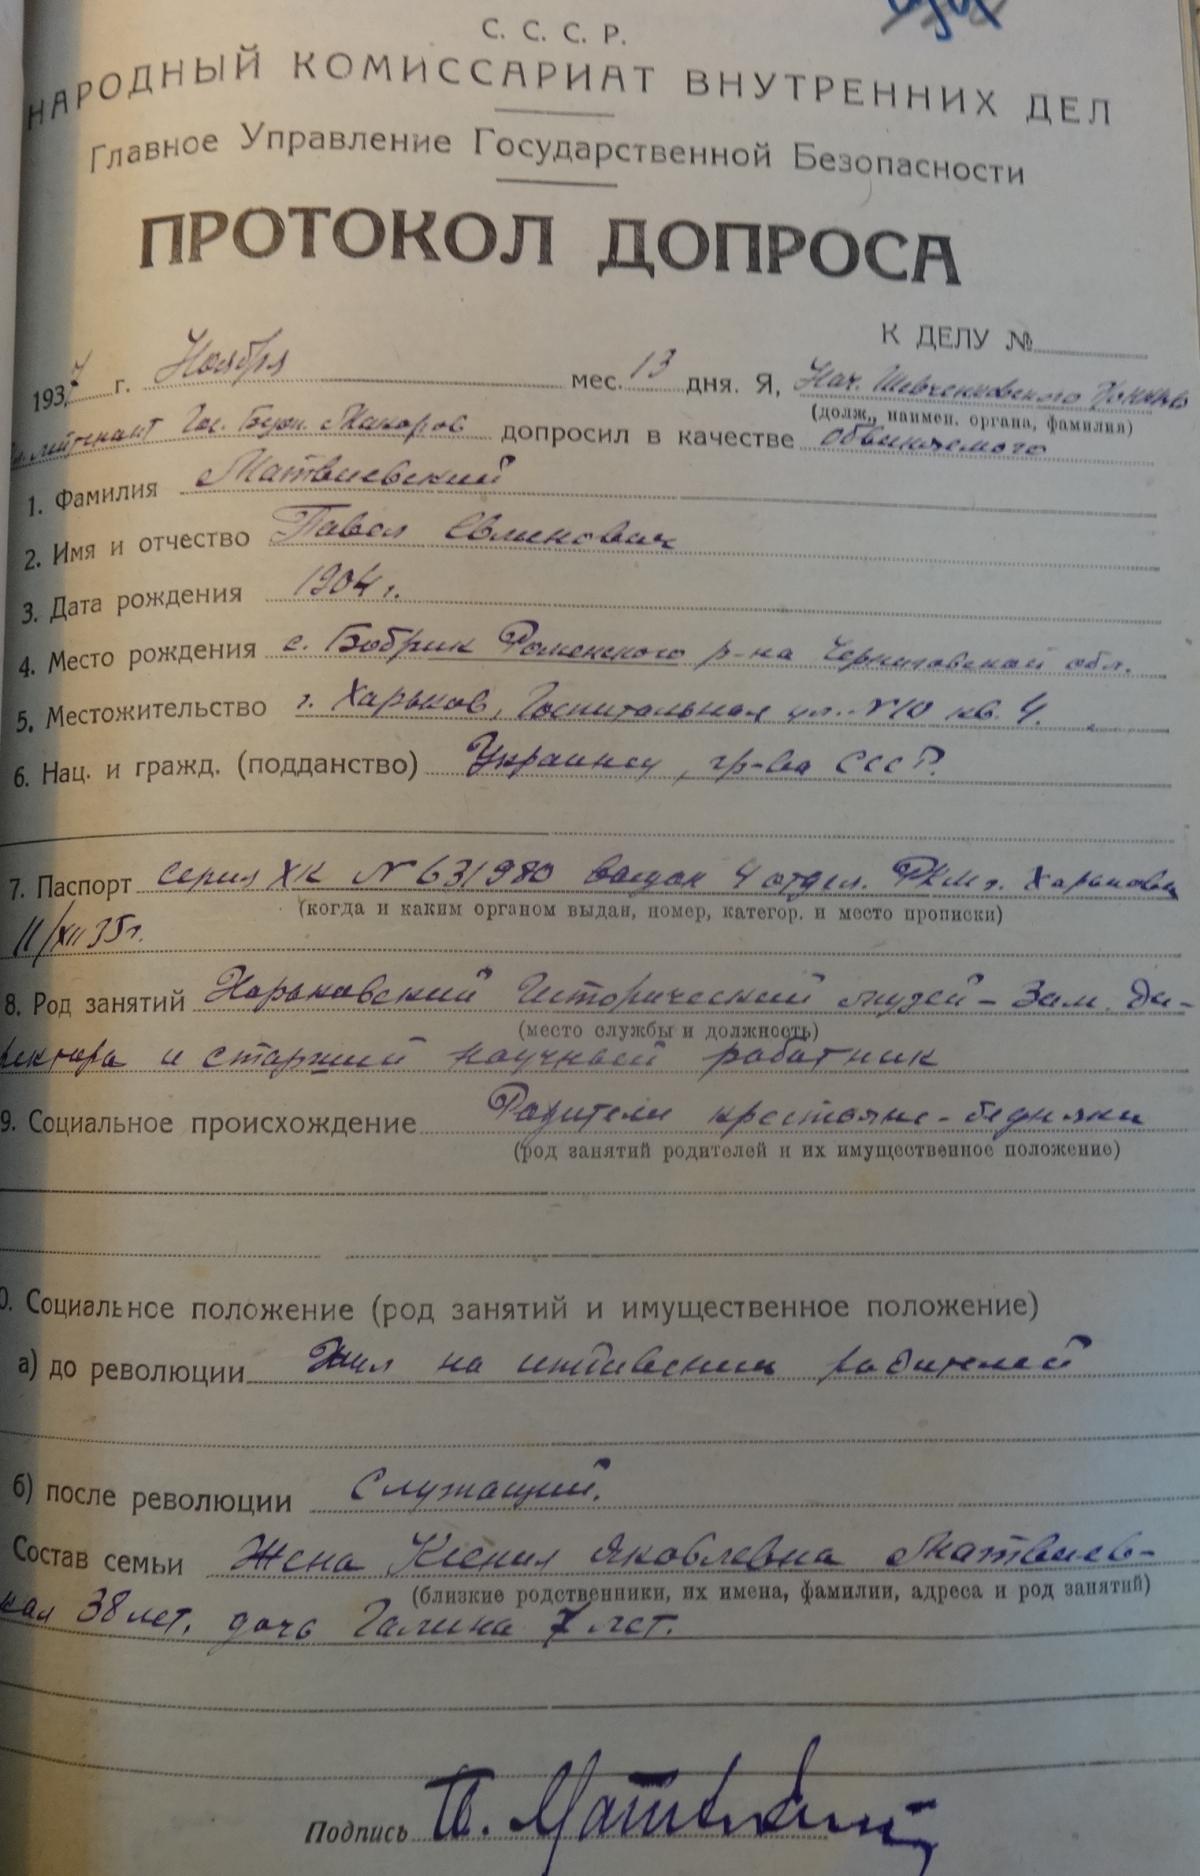 С. С. С. Р.
НАРОДНЫЙ КОМИССАРИАТ ВНУТРЕННИХ ДЕЛ
Главное Управление Государственной Безопасности
ПРОТОКОЛ ДОПРОСА
К ДЕЛУ №
1937 г. Ноября мес. 13 дня. Я, Нач. Шевченковского
(долж., наимен. органа, фамилия)
лейтенант Гос. Безп. Макаров допросил в качестве обвиняемого
1. Фамилия Матвиевский
2. Имя и отчество Павел Евлинович
3. Дата рождения 1904 г.
4. Место рождения с. Бобрик Роменского р-на Черниговской обл.
5. Местожительство г. Харьков, Госпитальная ул. №10 кв. 4.
6. Нац. и гражд. (подданство) Украинец, гр-ва СССР.
7. Паспорт серия ХК № 631980 выдан 4 отдел. РКМ г. Харькова
(когда и каким органом выдан, номер, категор. и место прописки)
11/XII 35г.
8. Род занятий Харьковский Исторический музей – Зам. Ди-
(место службы и должность)
ректора и старший научный работник
9. Социальное происхождение Родители крестьяне-бедняки
(род занятий родителей и их имущественное положение)
0. Социальное положение (род занятий и имущественное положение)
а) до революции Жил на иждивении родителей
б) после революции Служащий.
Состав семьи Жена Ксения Яковлевна Матвиев-
(близкие родственники, их имена, фамилии, адреса и род занятий)
кая 38 лет, дочь Галина 7 лет.
Подпись П. Матвиевский